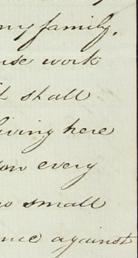 my family,
use work
it shall
living here
on every
so small
ance against